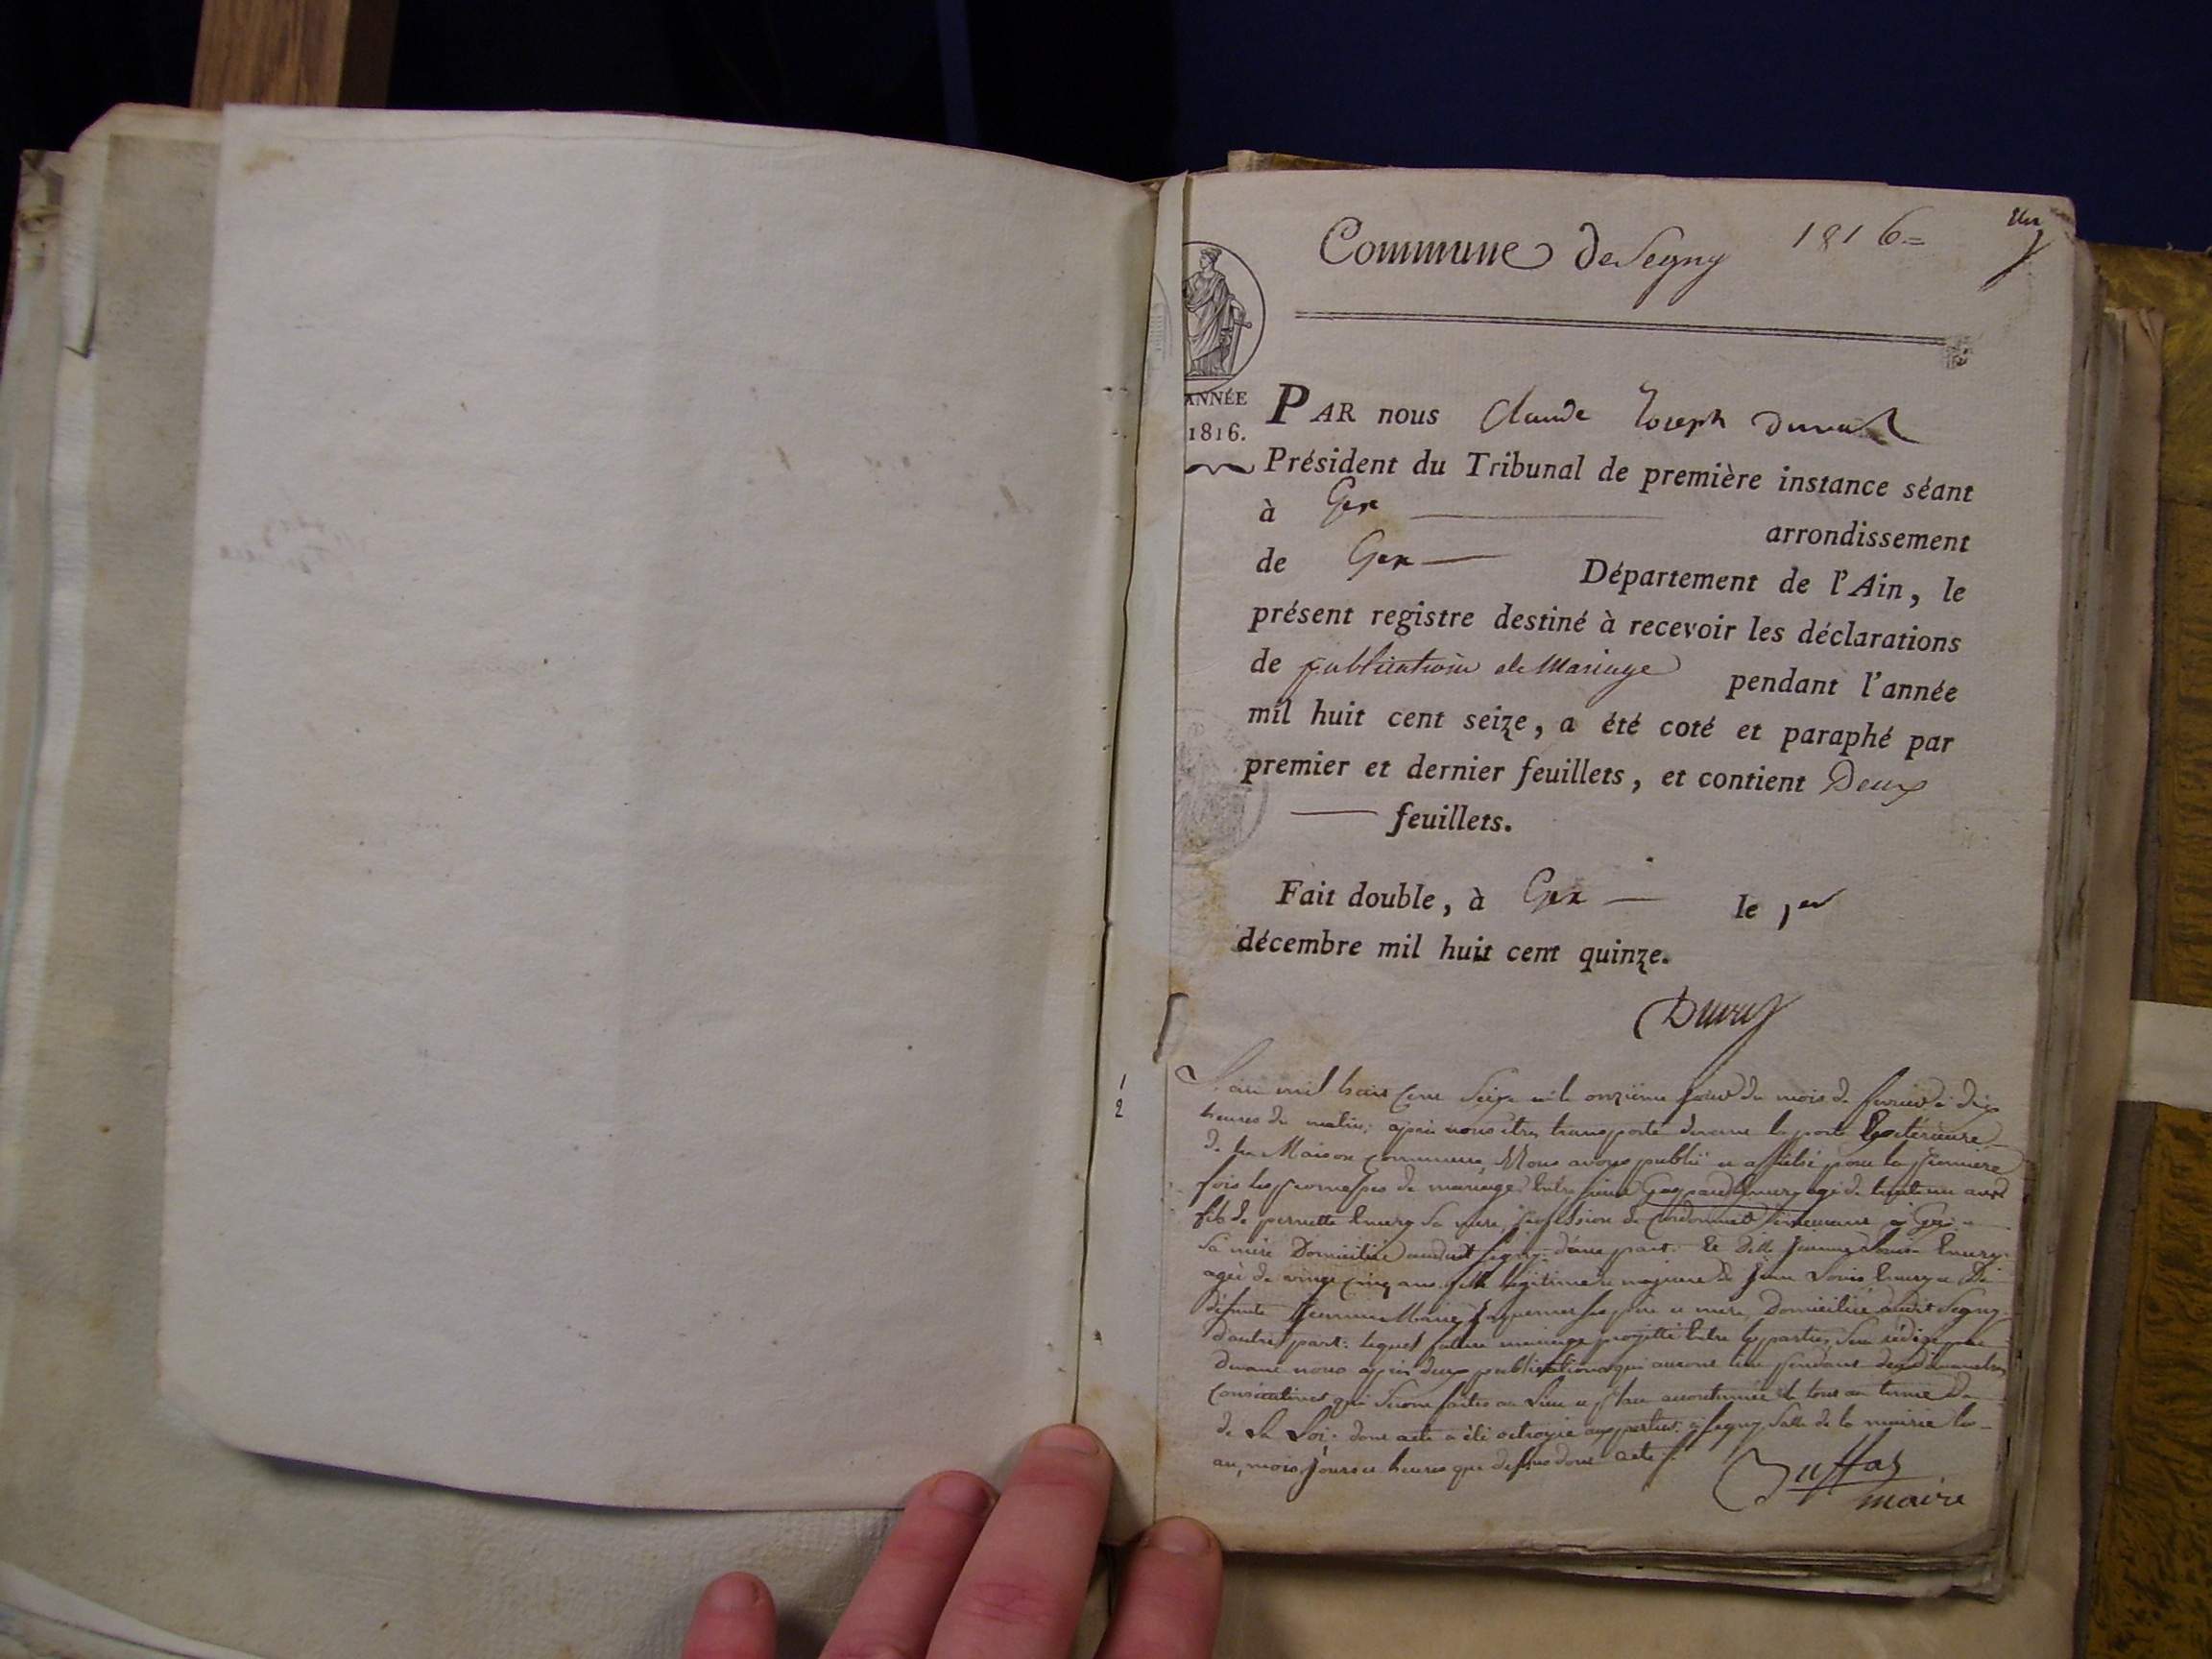 Commune de Segny 1816=
ANNÉE
1816.
PAR nous Claude Joseph Duval
Président du Tribunal de première instance séant
à Gex arrondissement
de Gex Département de l'Ain, le
présent registre destiné à recevoir les déclarations
de publication de Mariage pendant l'année
mil huit cent seize, a été coté et paraphé par
premier et dernier feuillets, et contient Deux
feuillets.
Fait double, à Gex le 1er
décembre mil huit cent quinze.
L'an mil huit cent Seize et le onzième jour du mois de fevrier à dix
heures du matin; après nous être transporté devant la porte Extérieure
de la Maison commune, Nous avons publié et affiché pour la premiere
fois les promesses de mariage Entre Gaspard Emery agé de trente un ans
fils de pernette Emery Sa mere, profession de Cordonnier à Gex
Sa mère Domiciliée audit Segny d'une part. Et Dlle Jeanne Louise Emery
agée de vingt cinq ans fille légitime et majeure de Jean Louis Emery et de
défunte Jeanne Marie ses père et mere, Domiciliée audit Segny
d'autre part: lequel futur mariage projetté Entre les parties, Sera rédigé par
devant nous après deux publications qui auront lieu pendant deux dimanches
Consécutives qui Seront faites au Lieu et place accoutumée le tout au terme de
de La Loi: dont acte a été octroyé aux parties à Segny Salle de la mairie les
an, mois, jours et heures que dessus dont acte
maire
1
2